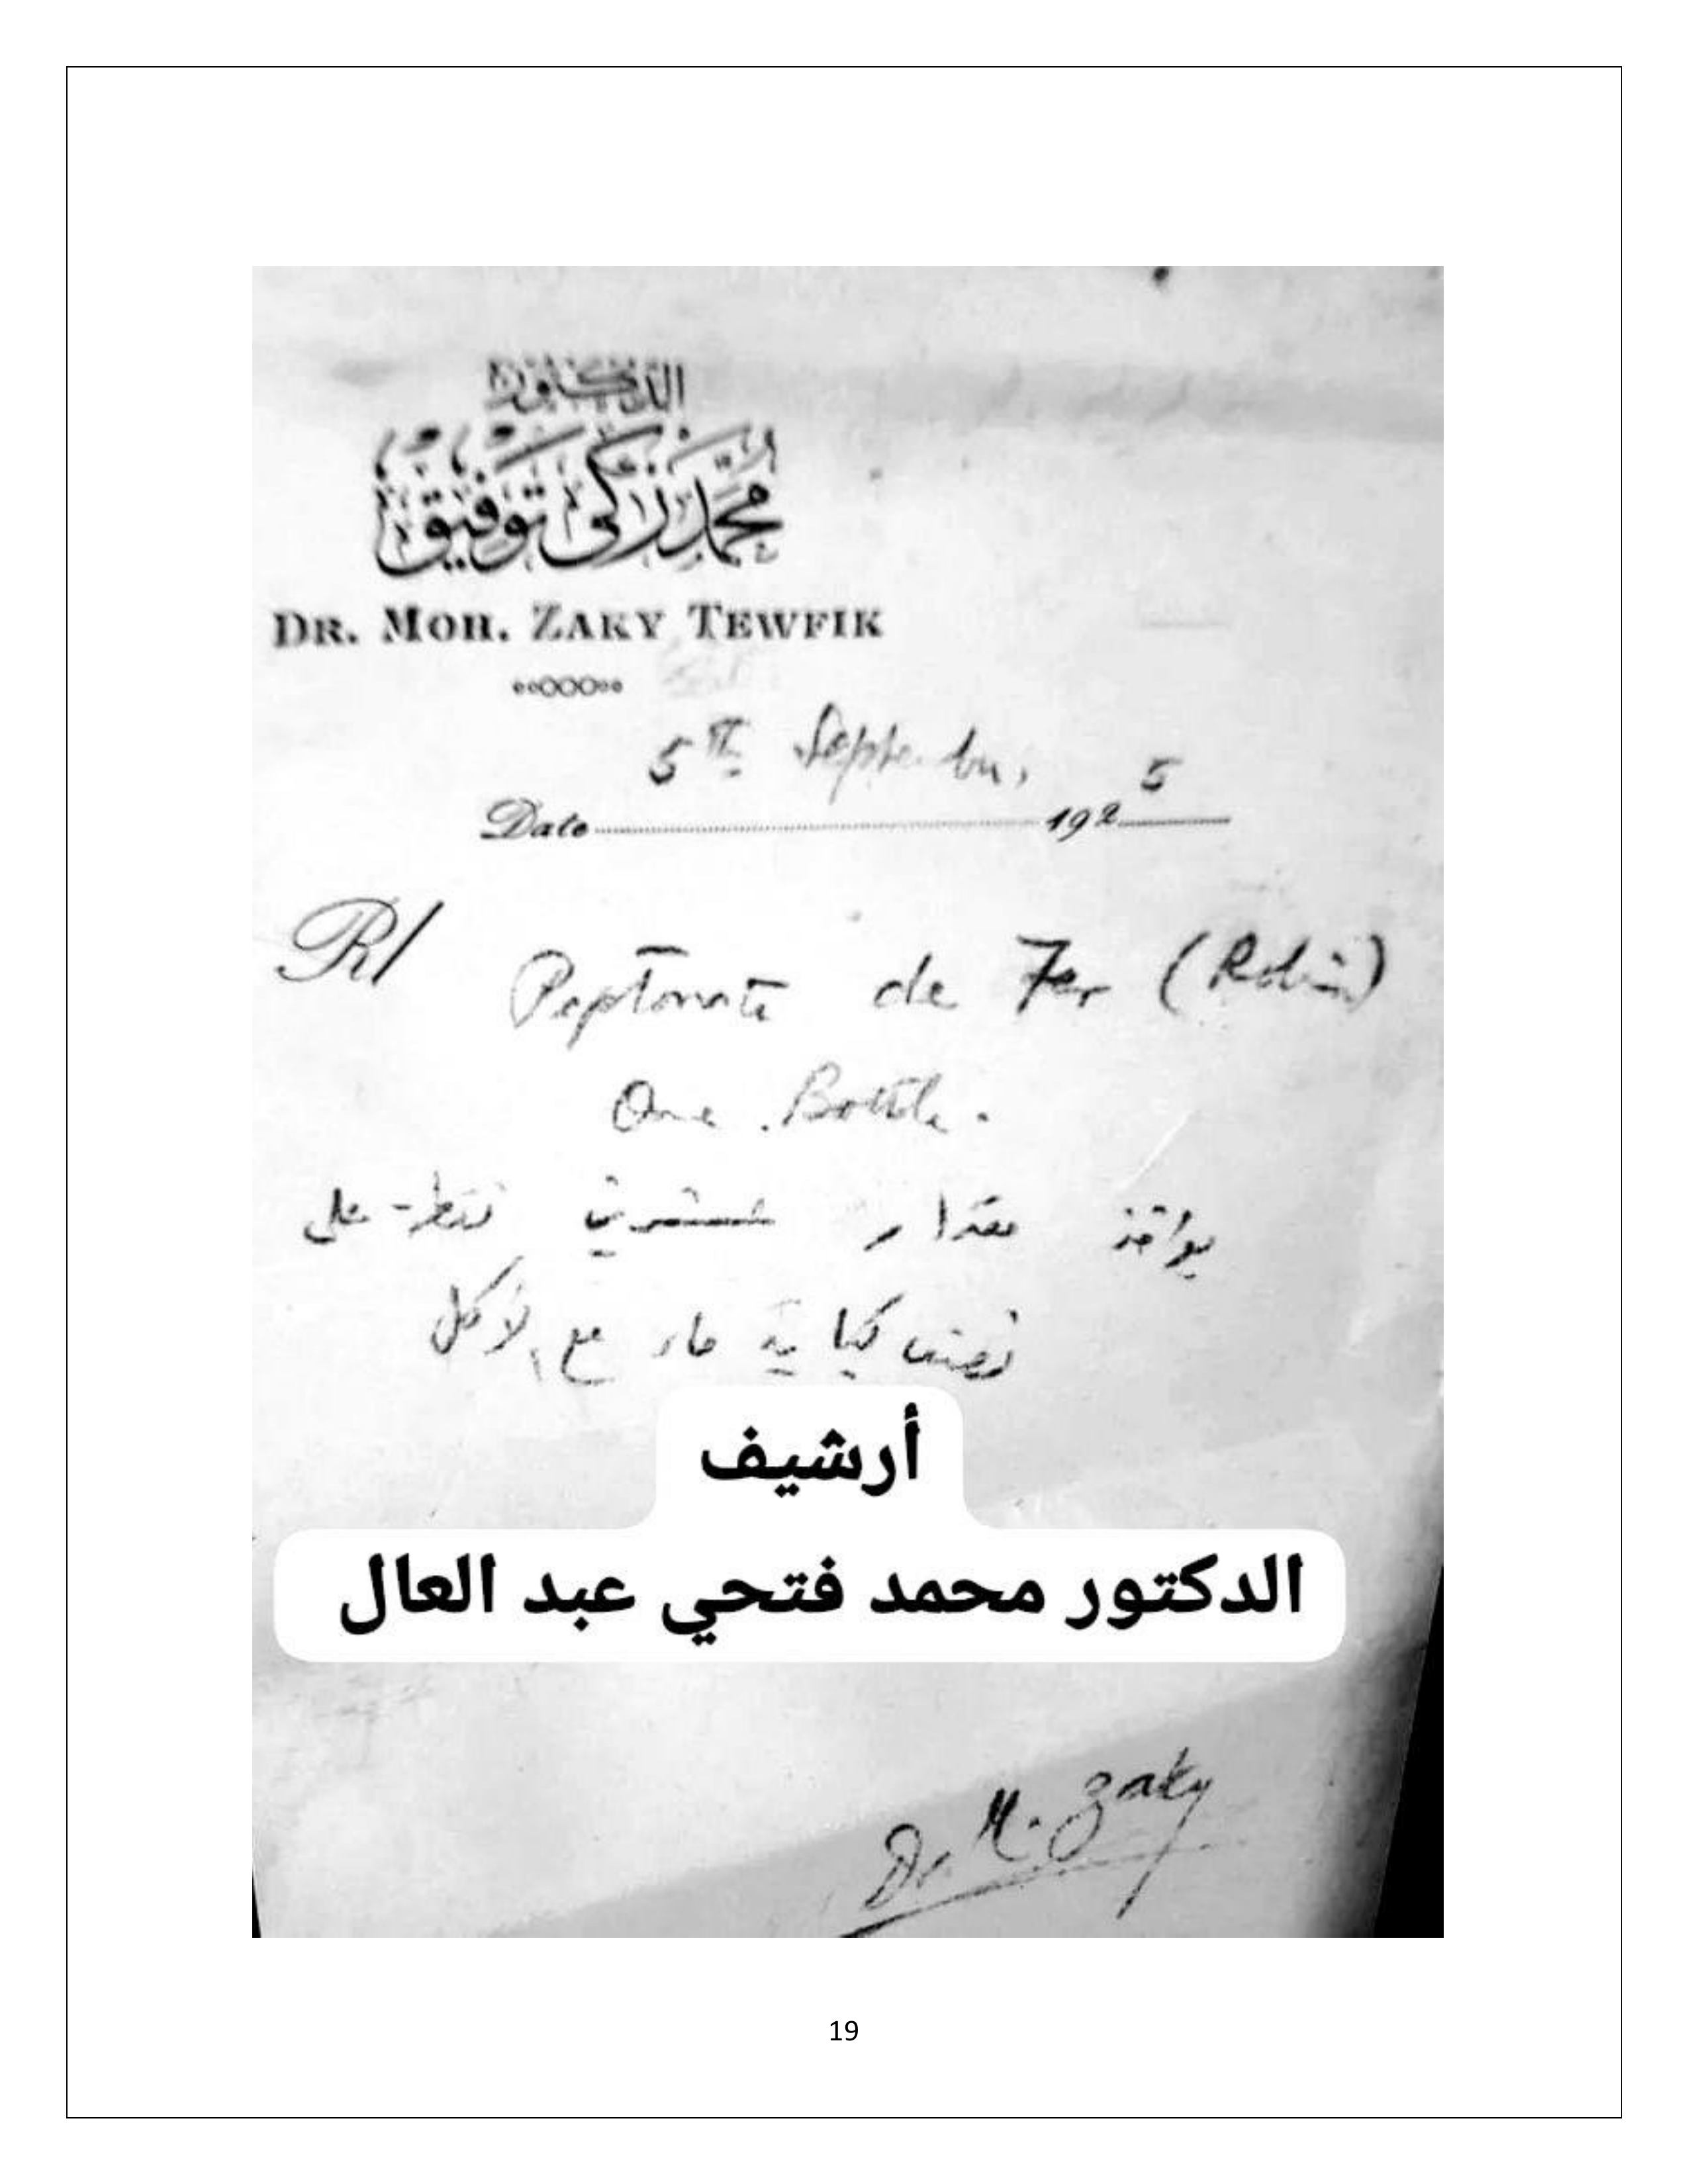 الدكتور
محمد زكى توفيق
DR. MOH. ZAKY TEWFIK
5th September, 5
Date 192
R/
Peptonate de Fer (Robin)
One Bottle.
مقدار عشرين نقطة على
نصف كباية ماء مع الأكل
أرشيف
الدكتور محمد فتحي عبد العال
Dr. M. Zaky
19